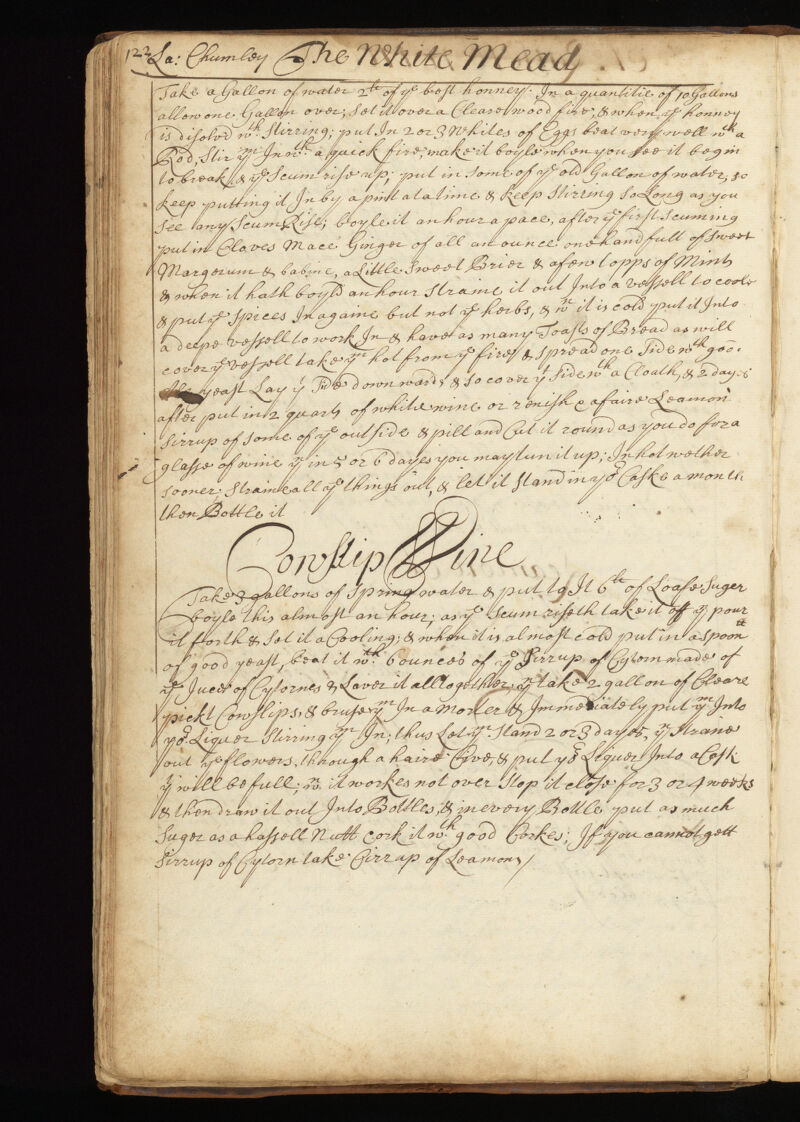 122 La: Chumley The White Mead
Take a Gallon of water 2lb of ye best honney: In a quantitie of 10 Gallons
allow one Gallon over; Set it over a Cleare wood fire, & when ye honney
is disolvd wth Stirring; put In 2 or 3 Whites of Eggs beat very well wth a
Rod, Stir ym In wth a quick fire, make it boyle when you see it begin
to break & ye Scum rise up; put in some of ye old Gallon of water, so
keep putting it In by a pint at a time & keep Stirring so Long as you
See any Scum Rise; boyle it an hour a pace, after ye first Scuming
put in Cloves Mace Ginger of all an ounce one hand full of sweet
Margerum & babine, a Little Sweet Brier & a few topps of Mint
& when it hath boyld an hour Straine it out Into a vessell to coole
& put ye Spices In againe but not ye herbs, & wn it is cold put it Into
a deepe vessell to work In & have as many Toasts of Bread as will
cover ye vessell take ym hot from ye fire & spread one Side wth goo:
yeast Lay yt Side downwards & so cover yt Side wth a Cloath, & 2 dayes
after put in 2 quarts of white wine or renish & a faire Leamon
Sirrup of some of ye out side & pill and Cut it round as you do for a
glasse of wine yn in 5 or 6 dayes you may tun it up; In hot wether
sooner; Straine all ye things out, & let it Stand in yor Caske a month
then Bottle it
Cowslip Wine
Take 3 gallons of Spring water & put to It 6lb of Loafe Suger
boyle this almost an hour; as ye Scum riseth take it off yn pour
it forth & Set it a Cooling; & when it is almost cold put in a spoonll
of good yeast, beat it wth 6 ounces of ye Sirrup of Cytorn made of
ye Juce of Cytornes & Laver it all together; yn take 2 gallon of Cleare
pickt Cowslips, & bruse ym In a Morter & Immediately put ym Into
yor Liquer Stirring ym In; thus Let ym Stand 2 or 3 dayes, yn Straine
out ye flowers, through a haire Cive, & put yor Liquer Into a Cask
yt will be full; wn it workes not over Stop it close for 3 or 4 weeks
& then draw it out Into Bottles, & in every Bottle put as much
Suger as a hassell Nutt cork it wth good Corkes; If you cannot gett
Sirrup of Cytorn take Cirrap of Leamons/